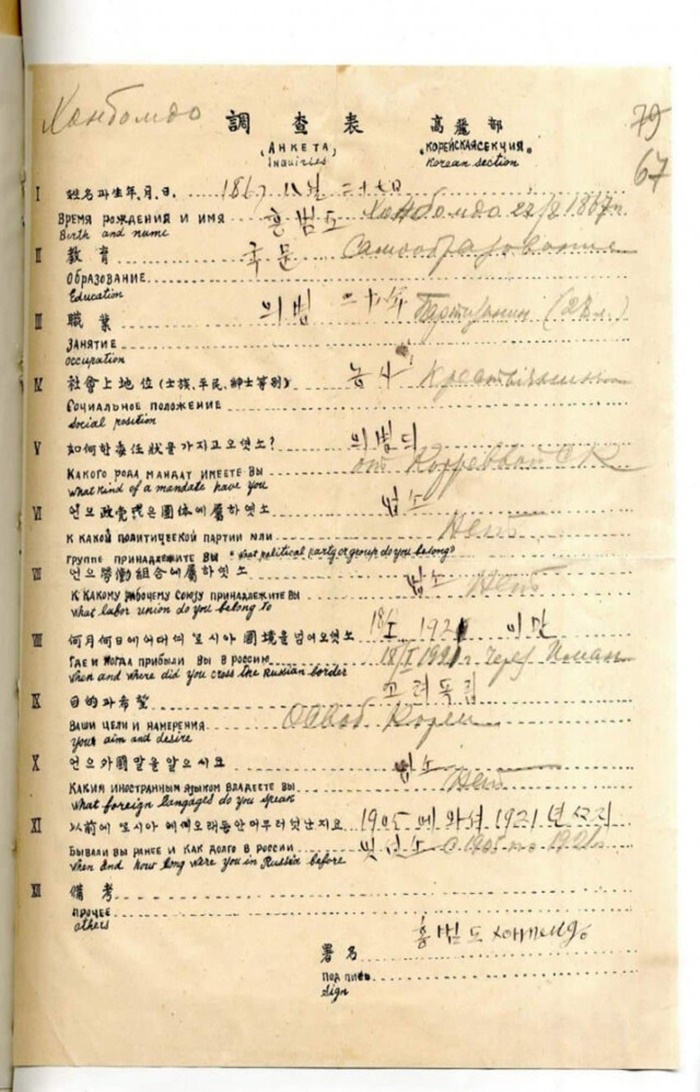 Ханбомдо
調 查 表 高 麗 部 79
(АНКЕТА) "КОРЕЙСКАЯ СЕКЦИЯ" 67
Inquiries Korean section
I 姓名과生年,月,日. 1867 八월 二十七日
ВРЕМЯ РОЖДЕНИЯ И ИМЯ 홍범도 Ханбомдо 1867г.
Birth and name
II 教育 국문 Самообразование
ОБРАЗОВАНИЕ
Education
III 職業 의병 二十 Партизанил
ЗАНЯТИЕ
occupation
IV 社會上地位(士族,平民,紳士等別) 농사
СОЦИАЛЬНОЕ ПОЛОЖЕНИЕ
social position
V 如何한委任狀을가지고오엿소?
КАКОГО РОДА МАНДАТ ИМЕЕТЕ ВЫ от
what kind of a mandate have you
VI 언으政党或은團体에屬하엿소 업소
К КАКОЙ ПОЛИТИЧЕСКОЙ ПАРТИИ ИЛИ Нет
ГРУППЕ ПРИНАДЛЕЖИТЕ ВЫ "what political party or group do you belong?
VII 언으勞働組合에屬하엿소 업소 Нет
К КАКОМУ РАБОЧЕМУ СОЮЗУ ПРИНАДЛЕЖИТЕ ВЫ
what labor union do you belong to
VIII 何月何日에어대여로시아國境을넘어오엿소 18/I 1921 이만
ГДЕ И КОГДА ПРИБЫЛИ ВЫ В РОССИЮ 18/I 1921 г Через Иман
when and where did you cross the Russian border
IX 目的과希望 고려독립
ВАШИ ЦЕЛИ И НАМЕРЕНИЯ Освоб Кореи
your aim and desire
X 언으外國말을알으시요 업소
КАКИЯ ИНОСТРАННЫМ ЯЗЫКОМ ВЛАДЕЕТЕ ВЫ Нет
what foreign langages do you speak
XI 以前에로시아에에오래동안어무러잇난지요 1905 에 와셔 1921 년
БЫВАЛИ ВЫ РАНЕЕ И КАК ДОЛГО В РОССИИ с 1905 по 1921
when and how long were you in Russia before
XII 備考
ПРОЧЕЕ
others
홍범도
署名
ПОДПИСЬ
Sign